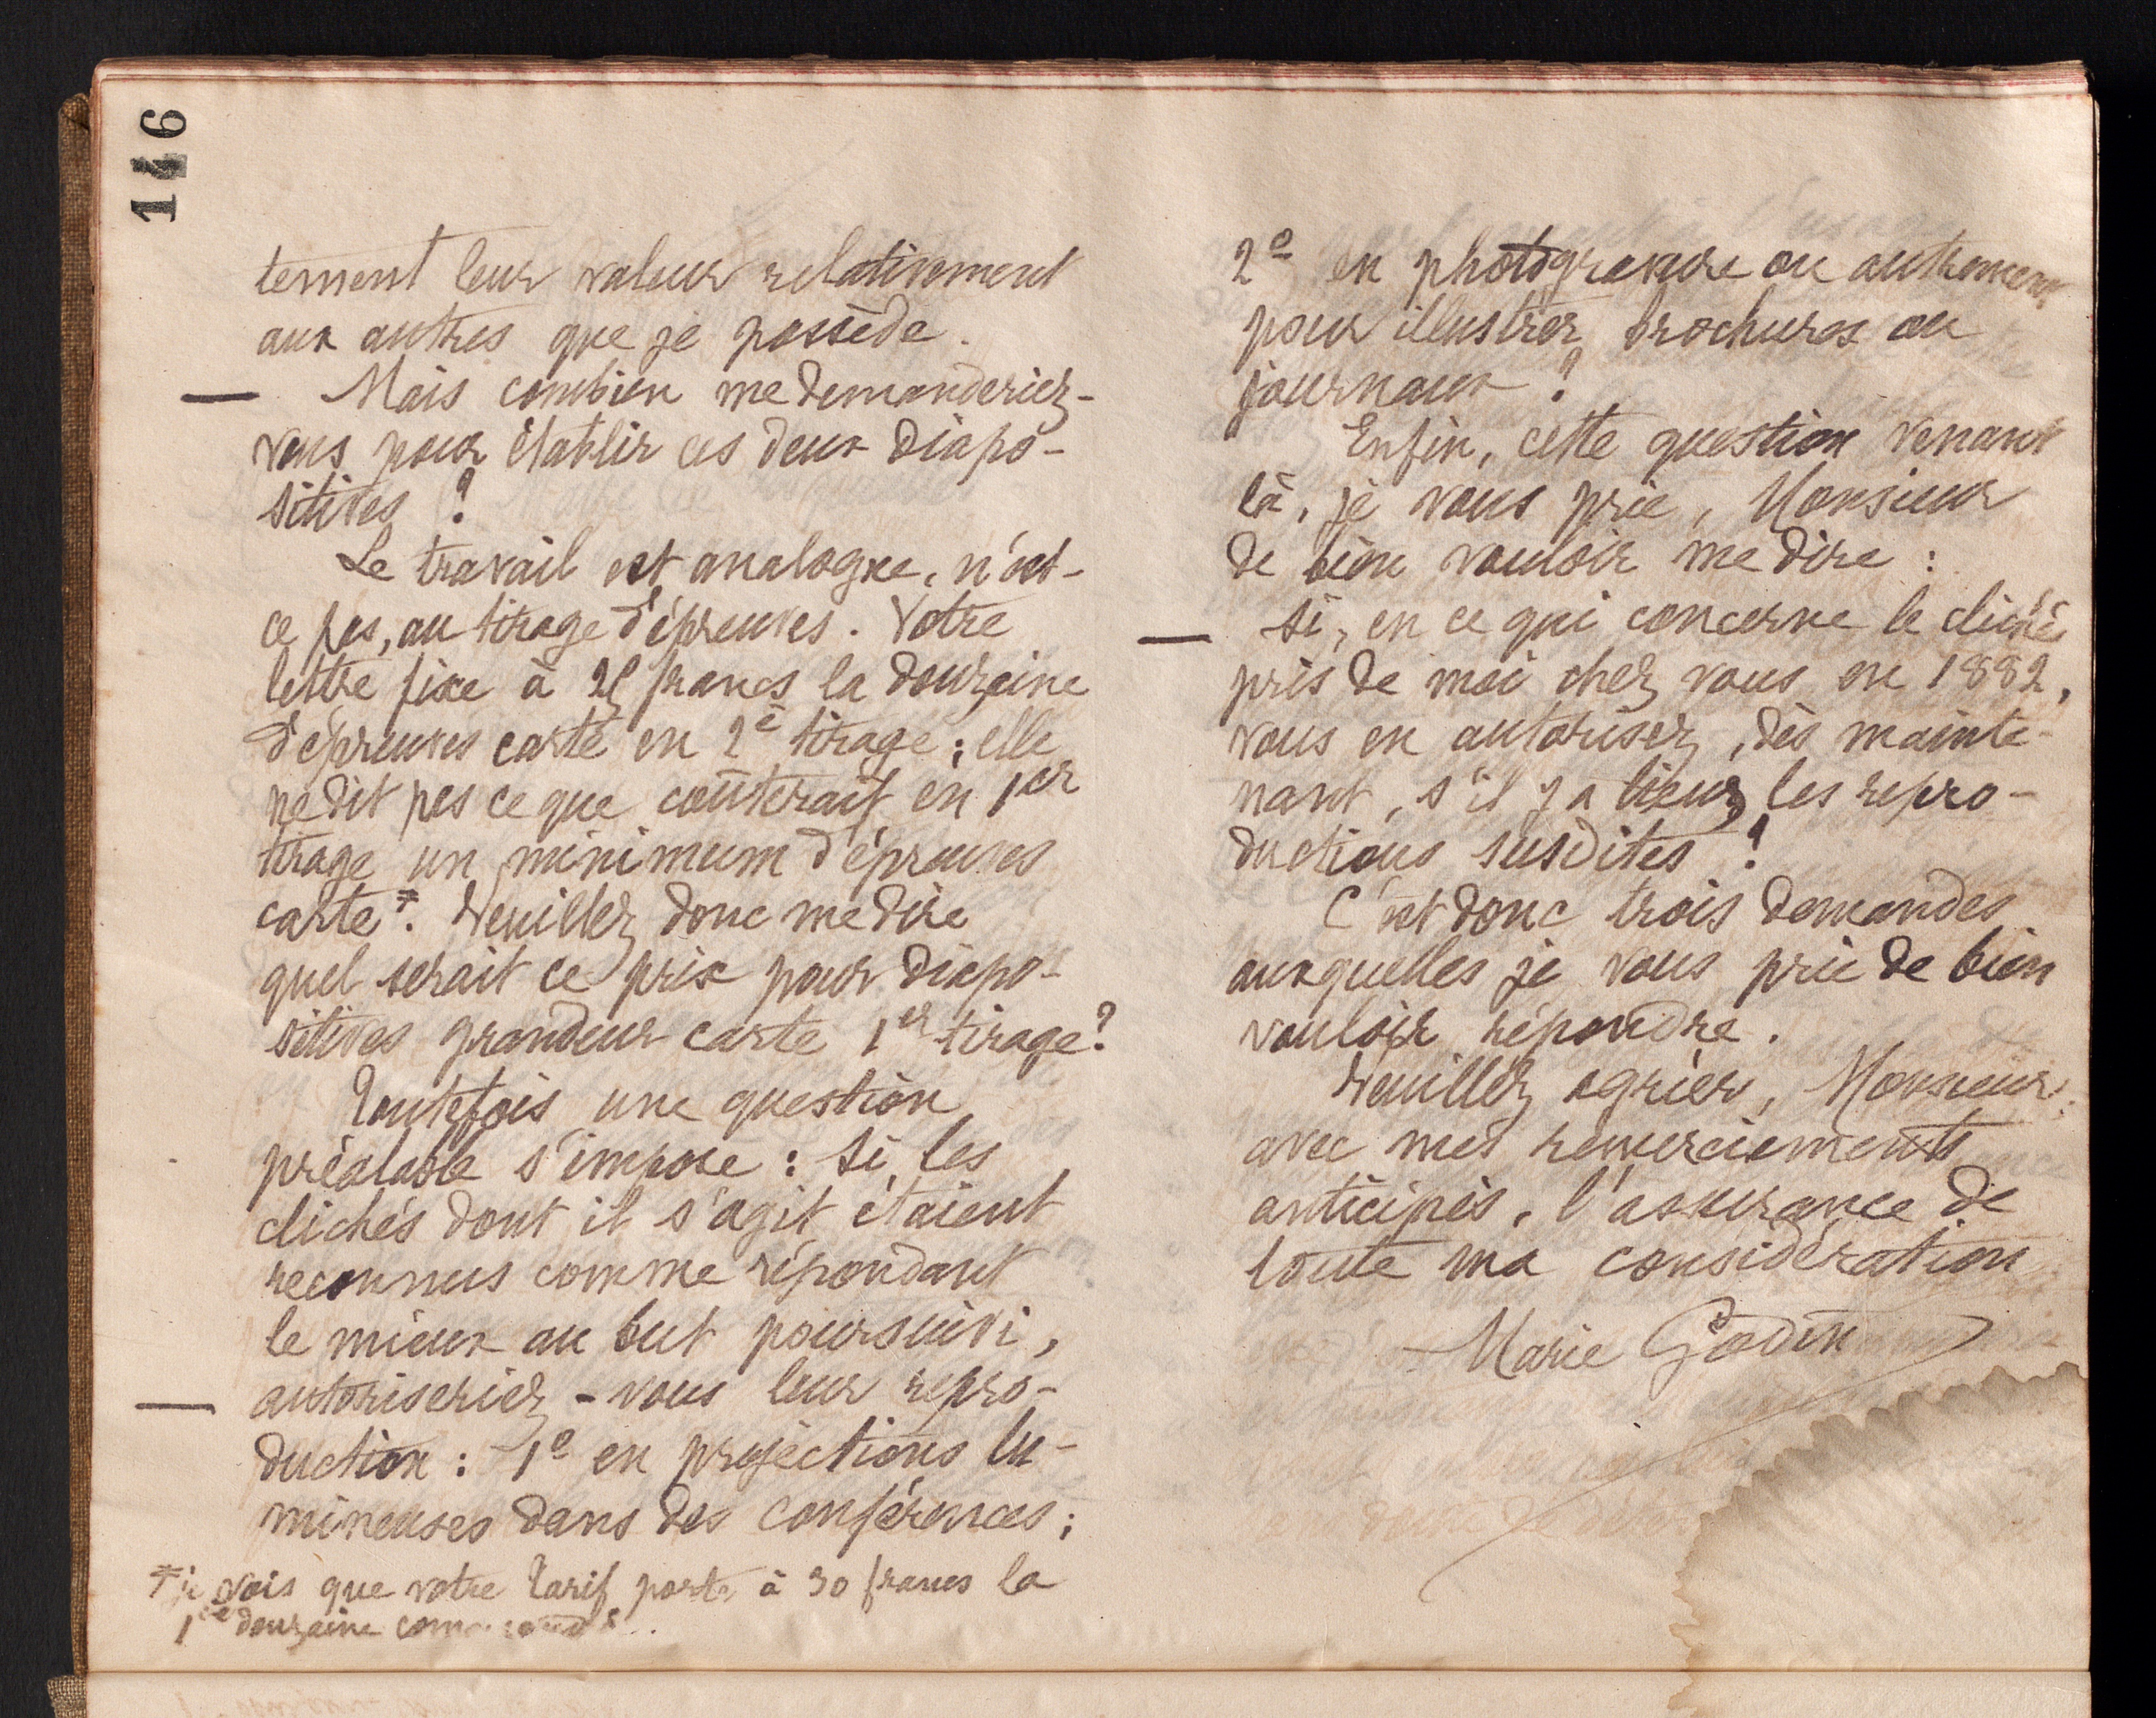 146
tement leur valeur relativement
aux autres que je possède.
— Mais combien me demanderiez-
vous pour établir ces deux diapo-
sitives ?
Le travail est analogue, n'est-
ce pas, au tirage d'épreuves. Votre
lettre fixe à 25 francs la douzaine
d'épreuves carte en 2e tirage ; elle
ne dit pas ce que coûterait en 1er
tirage un minimum d'épreuves
carte*. Veuillez donc me dire
quel serait ce prix pour diapo-
sitives grandeur carte 1er tirage ?
Toutefois une question
préalable s'impose : Si les
clichés dont il s'agit étaient
reconnus comme répondant
le mieux au but poursuivi,
— autoriseriez-vous leur repro-
duction : 1o en projections lu-
mineuses dans des conférences ;
* je vois que votre tarif porte à 30 francs la
1re douzaine
2o en photogravure ou autrement
pour illustrer brochures ou
journaux ?
Enfin, cette question venant
là, je vous prie, Monsieur
de bien vouloir me dire :
— Si, en ce qui concerne le cliché
pris de moi chez vous en 1882,
vous en autorisez, dès mainte-
nant, s'il y a lieu, les repro-
ductions susdites ?
C'est donc trois demandes
auxquelles je vous prie de bien
vouloir répondre.
Veuillez agréer, Monsieur,
avec mes remerciements
anticipés, l'assurance de
toute ma considération
Marie Godin